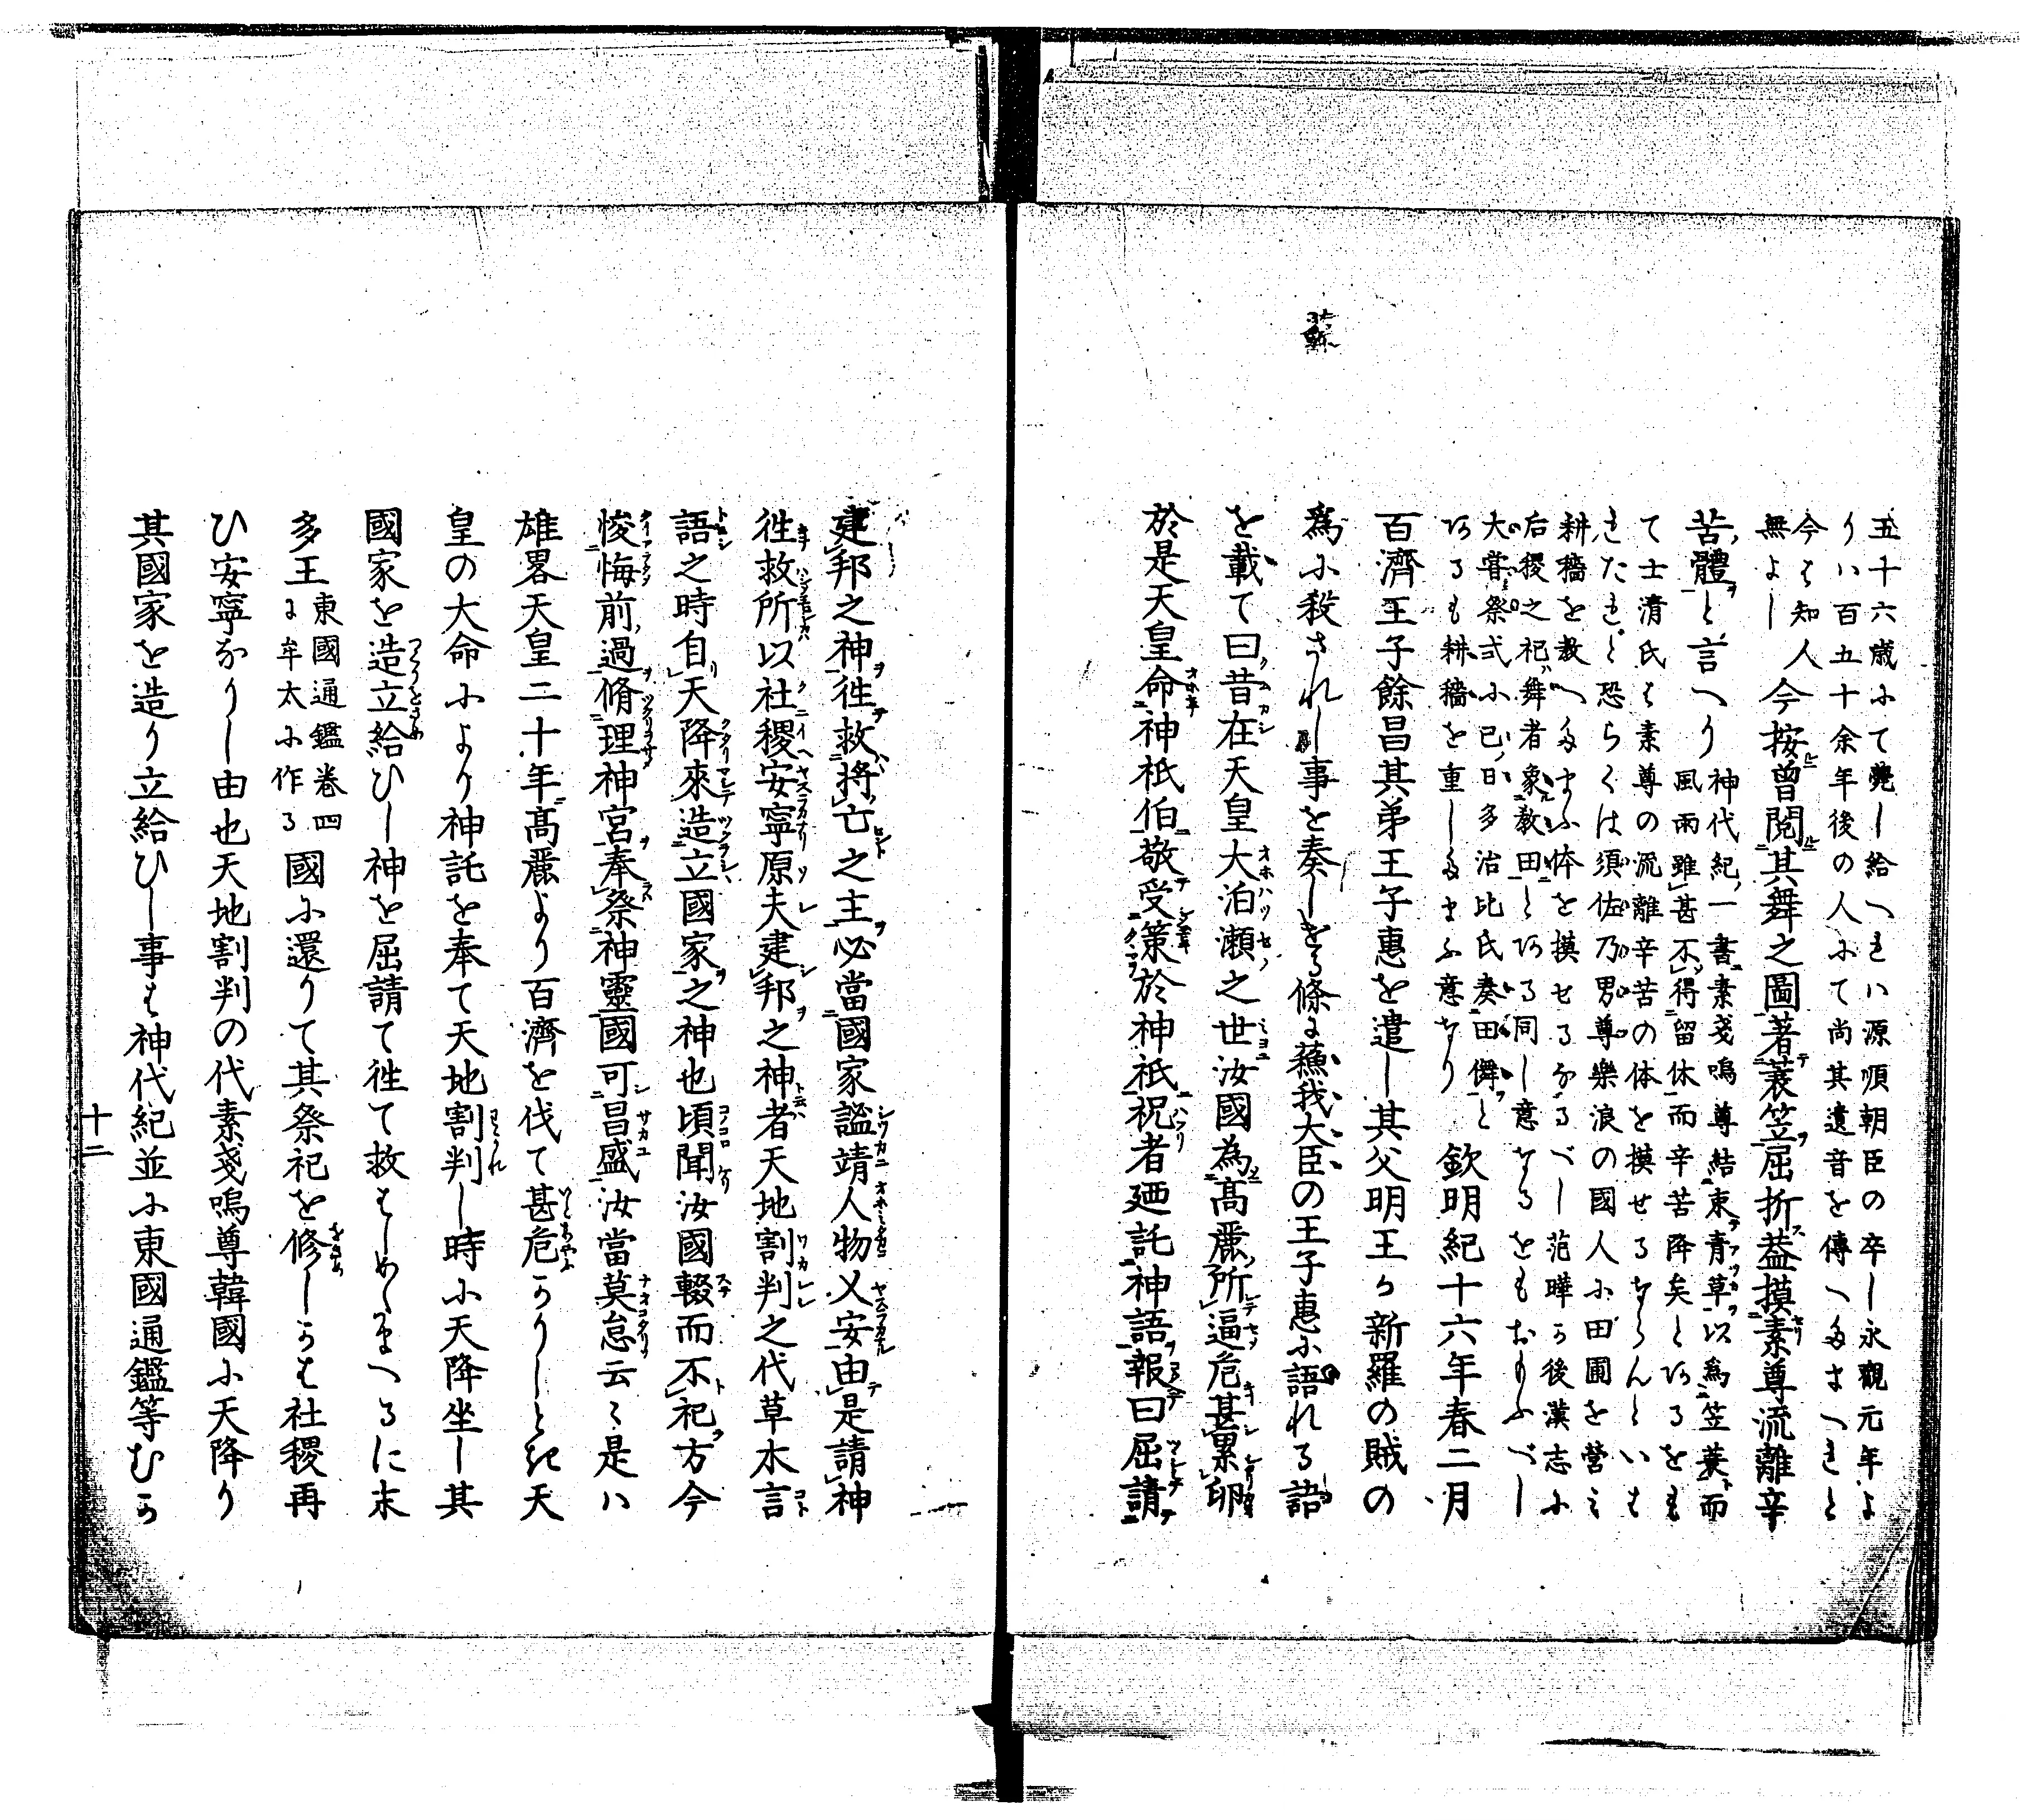 蘇
五十六歳ふて薨し給へれハ源順朝臣の卒し永觀元年よ
りハ百五十余年後の人ふて尚其遺音を傳へ
今は知人
無よし
今按曾閲其舞之圖著蓑笠屈折葢摸素尊流離辛
苦體と言へり
神代紀一書素戔嗚尊結束青草以爲笠蓑而
風雨雖甚不得留休而辛苦降矣とあるをも
て士清氏は素尊の流離辛苦の体を摸せるならんといは
れたれと恐らくは須佐乃男尊樂浪の國人ふ田圃を營み
耕穡を教へ給ふ体を摸せるなるべし范曄か後漢志ふ
后稷之祀舞者象教田とある同し意なるをもおもふべし
大嘗祭式ふ巳日多治比氏奏田儛と
あるも耕穡を重し給ふ意なり
欽明紀十六年春二月
百濟王子餘昌其弟王子惠を遣し其父明王か新羅の賊の
爲ふ殺されし事を奏しける條に蘓我大臣の王子惠ふ語れる語
を載て曰昔在天皇大泊瀬之世汝國為髙麗所逼危甚累卵
於是天皇命神祇伯敬受策於神祇祝者廼託神語報曰屈請
建邦之神徃救將亡之主必當國家謐靖人物乂安由是請神
徃救所以社稷安寧原夫建邦之神者天地割判之代草木言
語之時自天降來造立國家之神也頃聞汝國輟而不祀方今
悛悔前過脩理神宮奉祭神靈國可昌盛汝當莫怠云々是ハ
雄畧天皇二十年髙麗より百濟を伐て甚危かりしとき天
皇の大命ふより神託を奉て天地割判し時ふ天降坐し其
國家を造立給ひし神を屈請て徃て救はしめ給へるに末
多王
東國通鑑巻四
に牟太ふ作る
國ふ還りて其祭祀を修しかは社稷再
ひ安寧なりし由也天地割判の代素戔嗚尊韓國ふ天降り
其國家を造り立給ひし事は神代紀並ふ東國通鑑等むか
十二